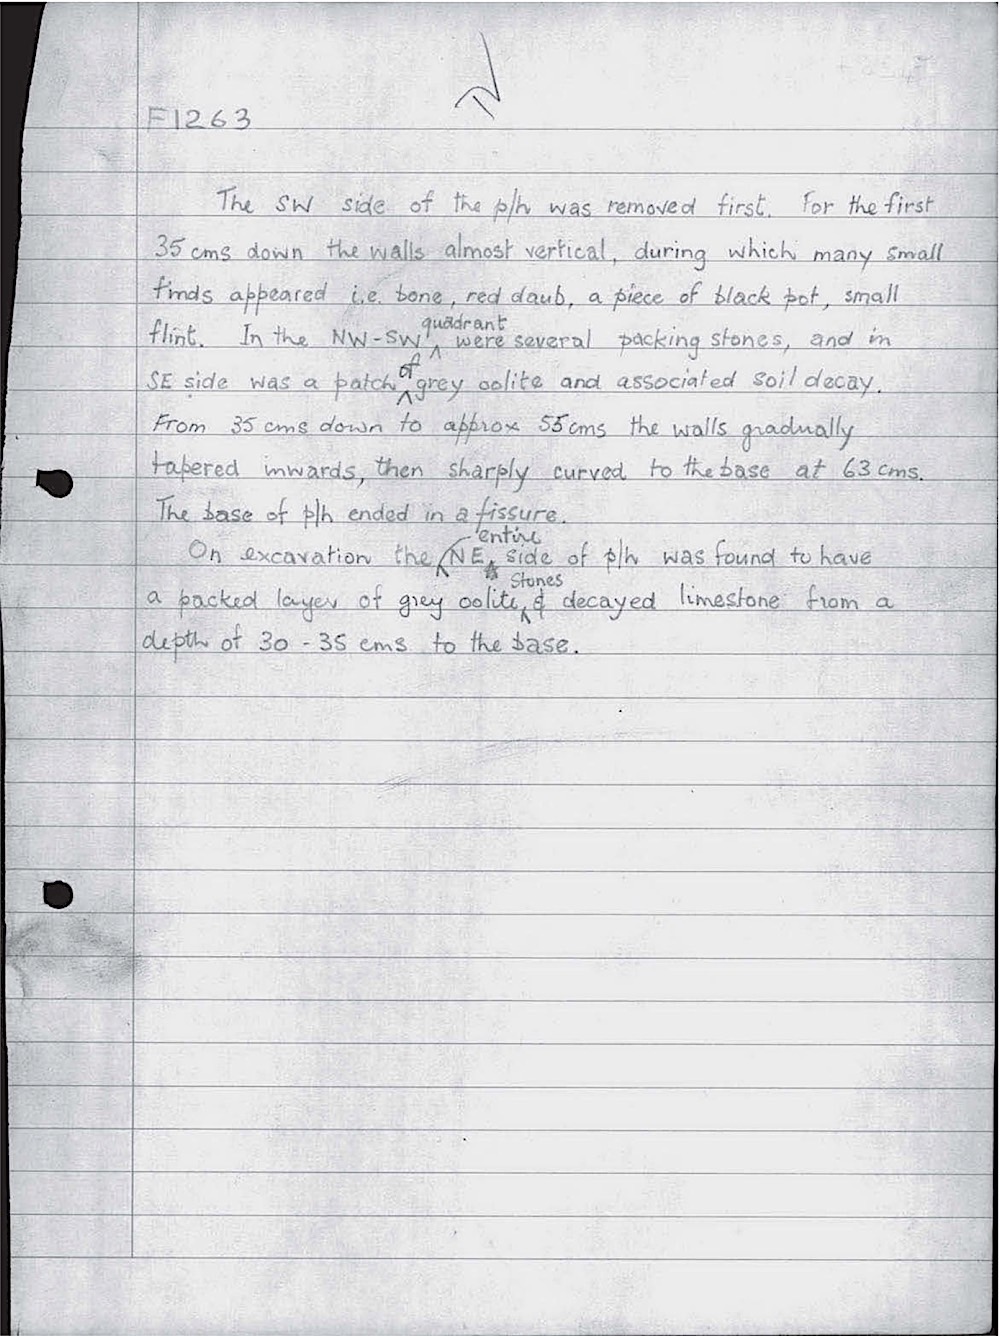 F1263
The SW side of the p/h was removed first. For the first
35 cms down the walls almost vertical, during which many small
finds appeared i.e. bone, red daub, a piece of black pot, small
flint. In the NW-SW quadrant were several packing stones, and in
SE side was a patch of grey oolite and associated soil decay.
From 35 cms down to approx 55cms the walls gradually
tapered inwards, then sharply curved to the base at 63 cms.
The base of p/h ended in a fissure.
On excavation the entire NE side of p/h was found to have
a packed layer of grey oolite stones & decayed limestone from a
depth of 30 - 35 cms to the base.